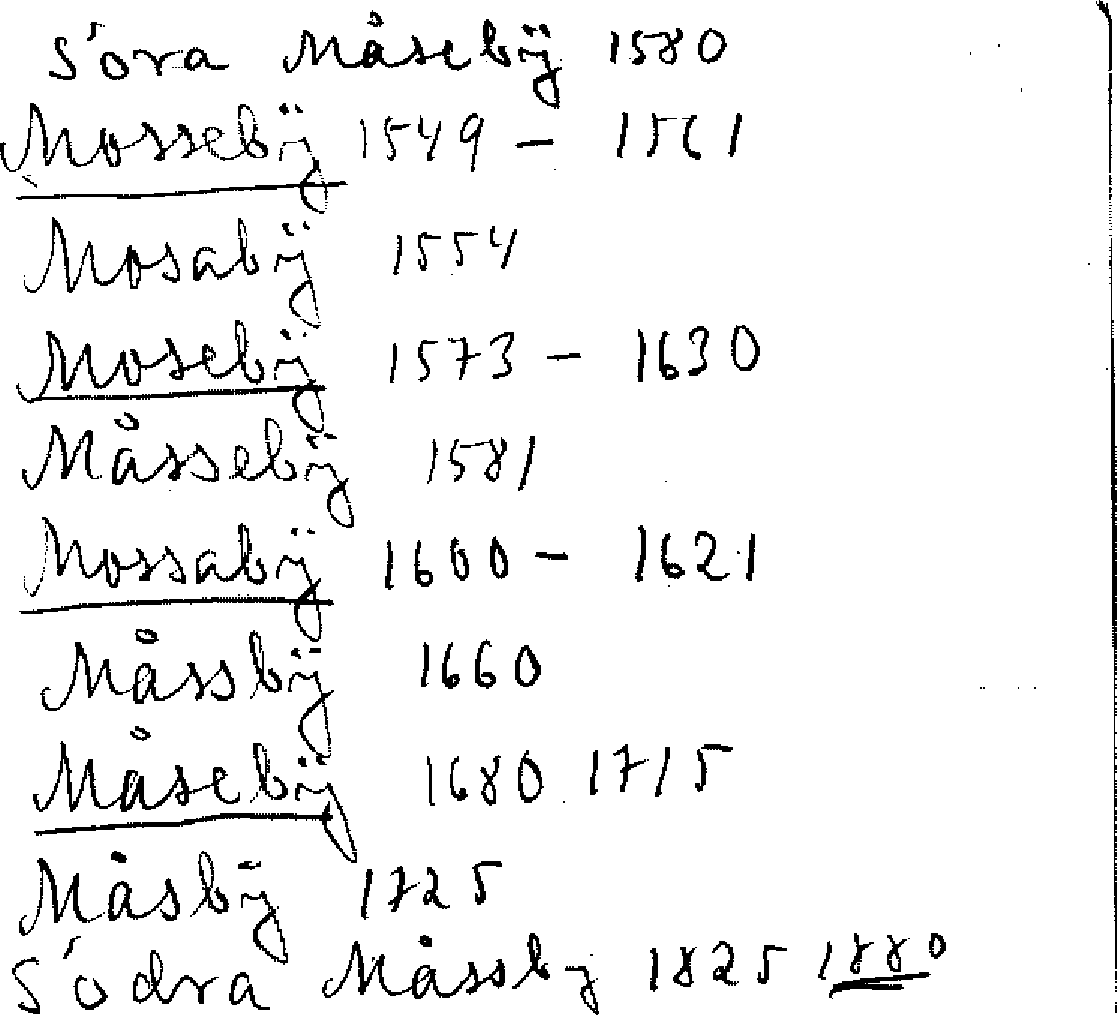 Söra Måsebÿ 1580
Mossebÿ 1549 - 1561
Mosabÿ 1554
Mosebÿ 1573 - 1630
Måssebÿ 1581
Mossabÿ 1600 - 1621
Måssbÿ 1660
Måsebÿ 1680 1715
Måsbÿ 1725
Södra Måssby 1825 1880